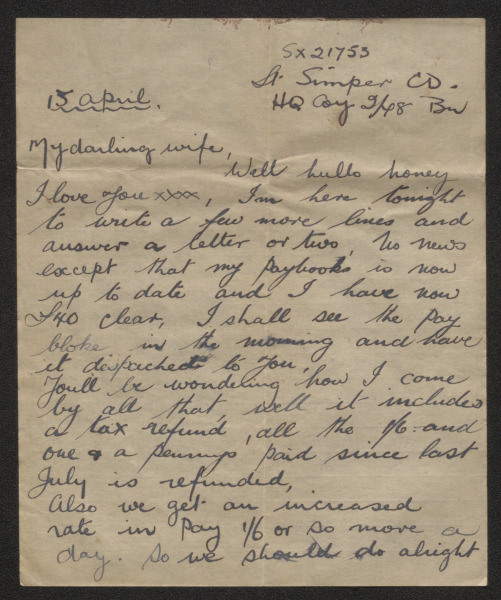 SX21753
Lt. Simper CD.
15 April.
HQ Coy 2/48 Bn
My darling wife,
Well hullo honey
I love you xxxx, I'm here tonight
to write a few more lines and
answer a letter or two, No news
except that my paybook is now
up to date and I have now
£40 clear, I shall see the pay
bloke in the morning and have
it despached to you,
You'll be wondering how I come
by all that, well it includes
a tax refund, all the 1/6 and
one & a pennys paid since last
July is refunded,
Also we get an increased
rate in Pay 1/6 or so more a
day. So we should do alright